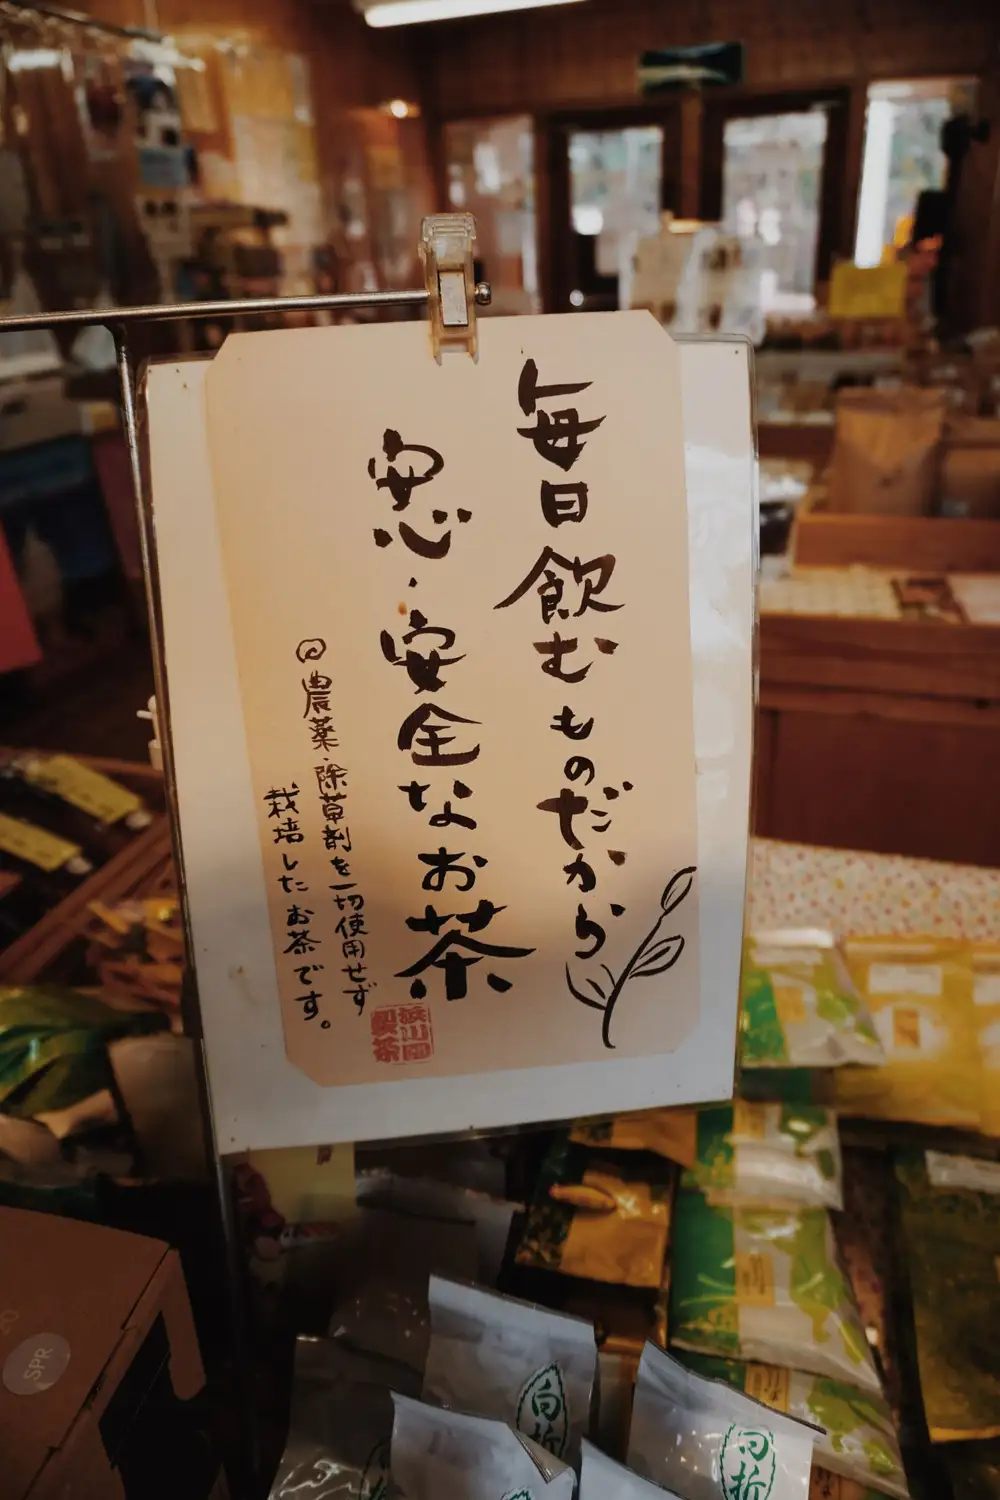 毎日飲むものだから
安心・安全なお茶
農薬・除草剤を一切使用せず
栽培したお茶です。
製茶
白折
白折
SPR